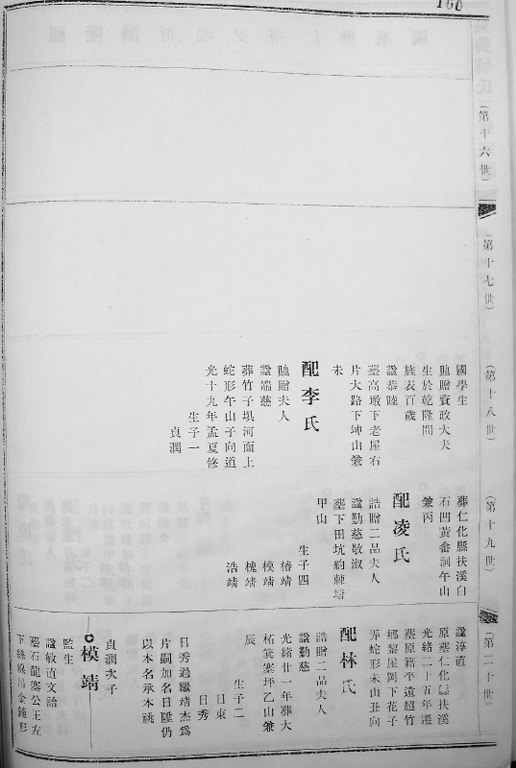 160
(第十六世)
(第十七世)
(第十八世)
國學生
貤贈資政大夫
生於乾隆間
旌表百歲
諡恭睦
塟高墩下老屋右
片大路下坤山兼
未
配李氏
貤贈夫人
諡端慈
葬竹子垻河面上
蛇形午山子向道
光十九年孟夏修
生子一
貞潤
(第十九世)
葬仁化縣扶溪白
石凹黃畬洞午山
兼丙
配凌氏
誥贈二品夫人
諡勤慈敬淑
塟下田坑約棘塘
甲山
生子四
椿靖
模靖
槐靖
浩靖
(第二十世)
諡淳直
原塟仁化縣扶溪
光緒二十五年遷
塟原籍平遠超竹
鄉黎屋岡下花子
弄蛇形未山丑向
配林氏
誥贈二品夫人
諡勤慈
光緒廿一年葬大
柘箕寨坪乙山兼
辰
生子二
日東
日秀
日秀過繼靖杰為
片嗣加名日陞仍
以本名承本祧
貞潤次子
模靖
監生
諡敏直文諂
塟石龍寨公王左